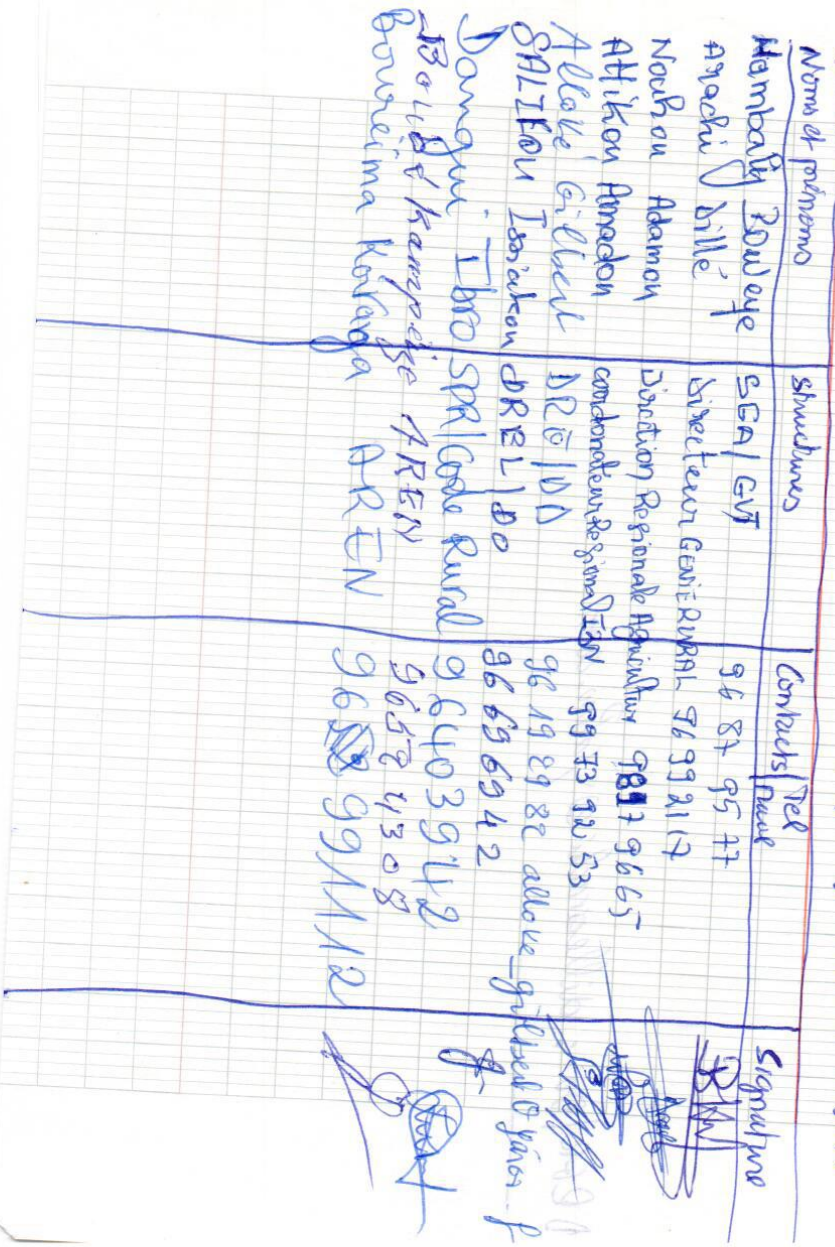 Noms et prénoms Structures Contacts/Tel Signature
Hambally Boweye SGA/GVT 96 87 95 77
Arachi Dillé Directeur GENIE RURAL 96 99 21 17
Nouhou Adamou Direction Regionale Agriculture 9897 9665
Attikou Amadou coordonateur Regional I3N 99 73 92 53
Allové Gilbert DRE/DO 96 19 89 82
SALIFOU Issiakou DREL/DO 96 69 69 42
Dangui Ibro SPR/Code Rural 96403942
AREN 9658 4308
Boureima AREN 96 991112